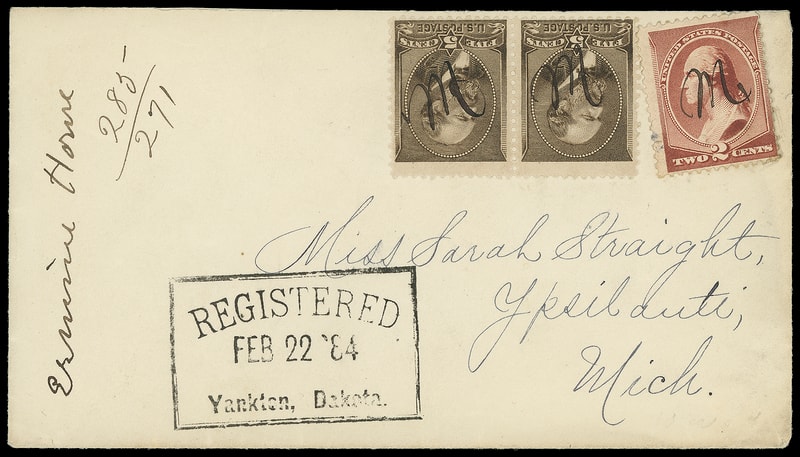 U.S. POSTAGE
FIVE 5 CENTS
U.S. POSTAGE
FIVE 5 CENTS
UNITED STATES POSTAGE
TWO 2 CENTS
M
M
M
285
271
Miss Sarah Straight,
Ypsilanti,
Mich.
REGISTERED
FEB 22 '84
Yankton, Dakota.
Ermine Horne